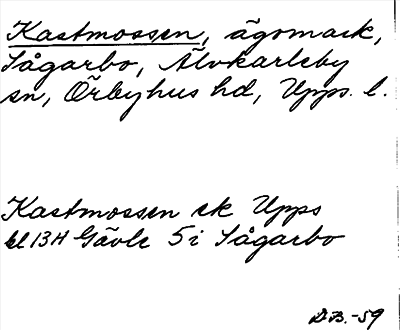 Kastmossen, ägomark,
Sågarbo, Älvkarleby
sn, Örbyhus hd, Upps. l.
Kastmossen ek Upps
bl 13H Gävle 5i Sågarbo
D.B.-59